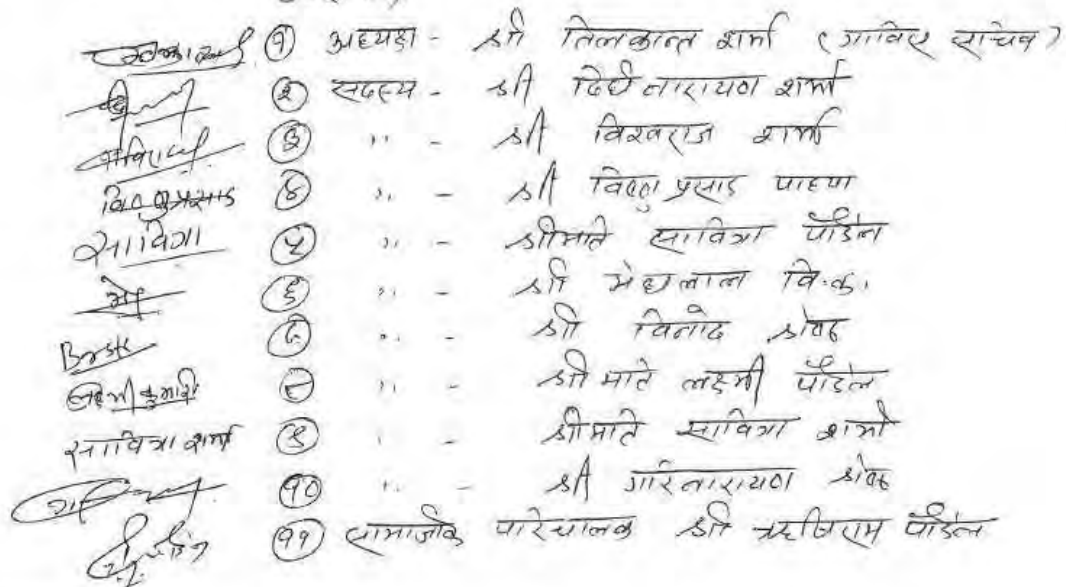 १ अध्यक्ष - श्री तिलकान्त शर्मा (गाविस सचिव)
२ सदस्य - श्री दिर्घ नारायण शर्मा
३ ,, - श्री विश्वराज शर्मा
विष्णुप्रसाद ४ ,, - श्री विष्णु प्रसाद पाध्या
सावित्रा ५ ,, - श्रीमति सावित्रा पौडेल
६ ,, - श्री मेघलाल वि.क.
७ ,, - श्री विनोद श्रेष्ठ
लक्ष्मी कुमारी ८ ,, - श्रीमति लक्ष्मी पौडेल
सावित्रा शर्मा ९ ,, - श्रीमति सावित्रा शर्मा
१० ,, - श्री गोरिनारायण श्रेष्ठ
११ सामाजीक परिचालक श्री ऋषिराम पौडेल